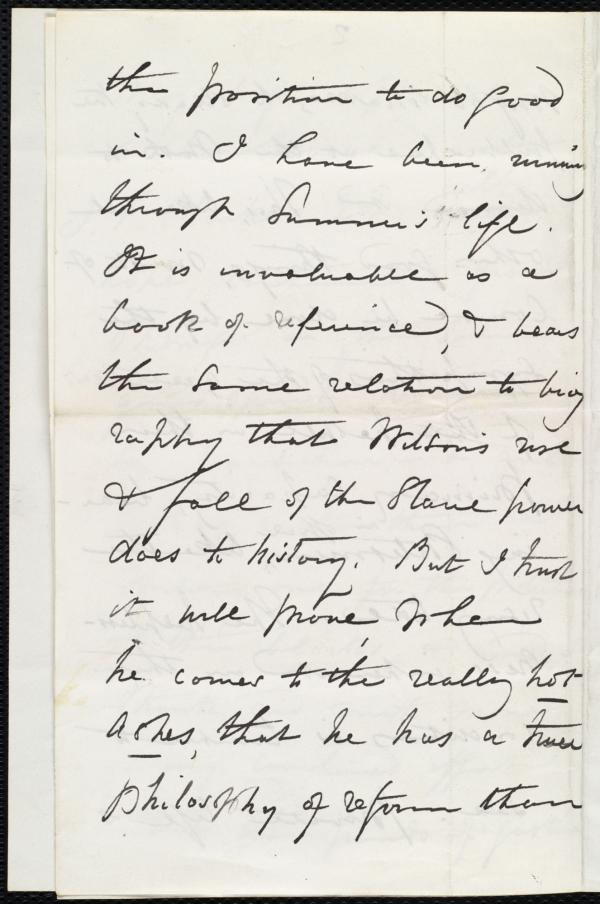 the position to do good
in. I have been running
through Sumner's life.
It is invaluable as a
book of reference, & bears
the same relation to biog
raphy that Wilson's rise
& fall of the Slave power
does to history. But I trust
it will prove, when
he comes to the really hot
ashes, that he has a truer
philosophy of reform than